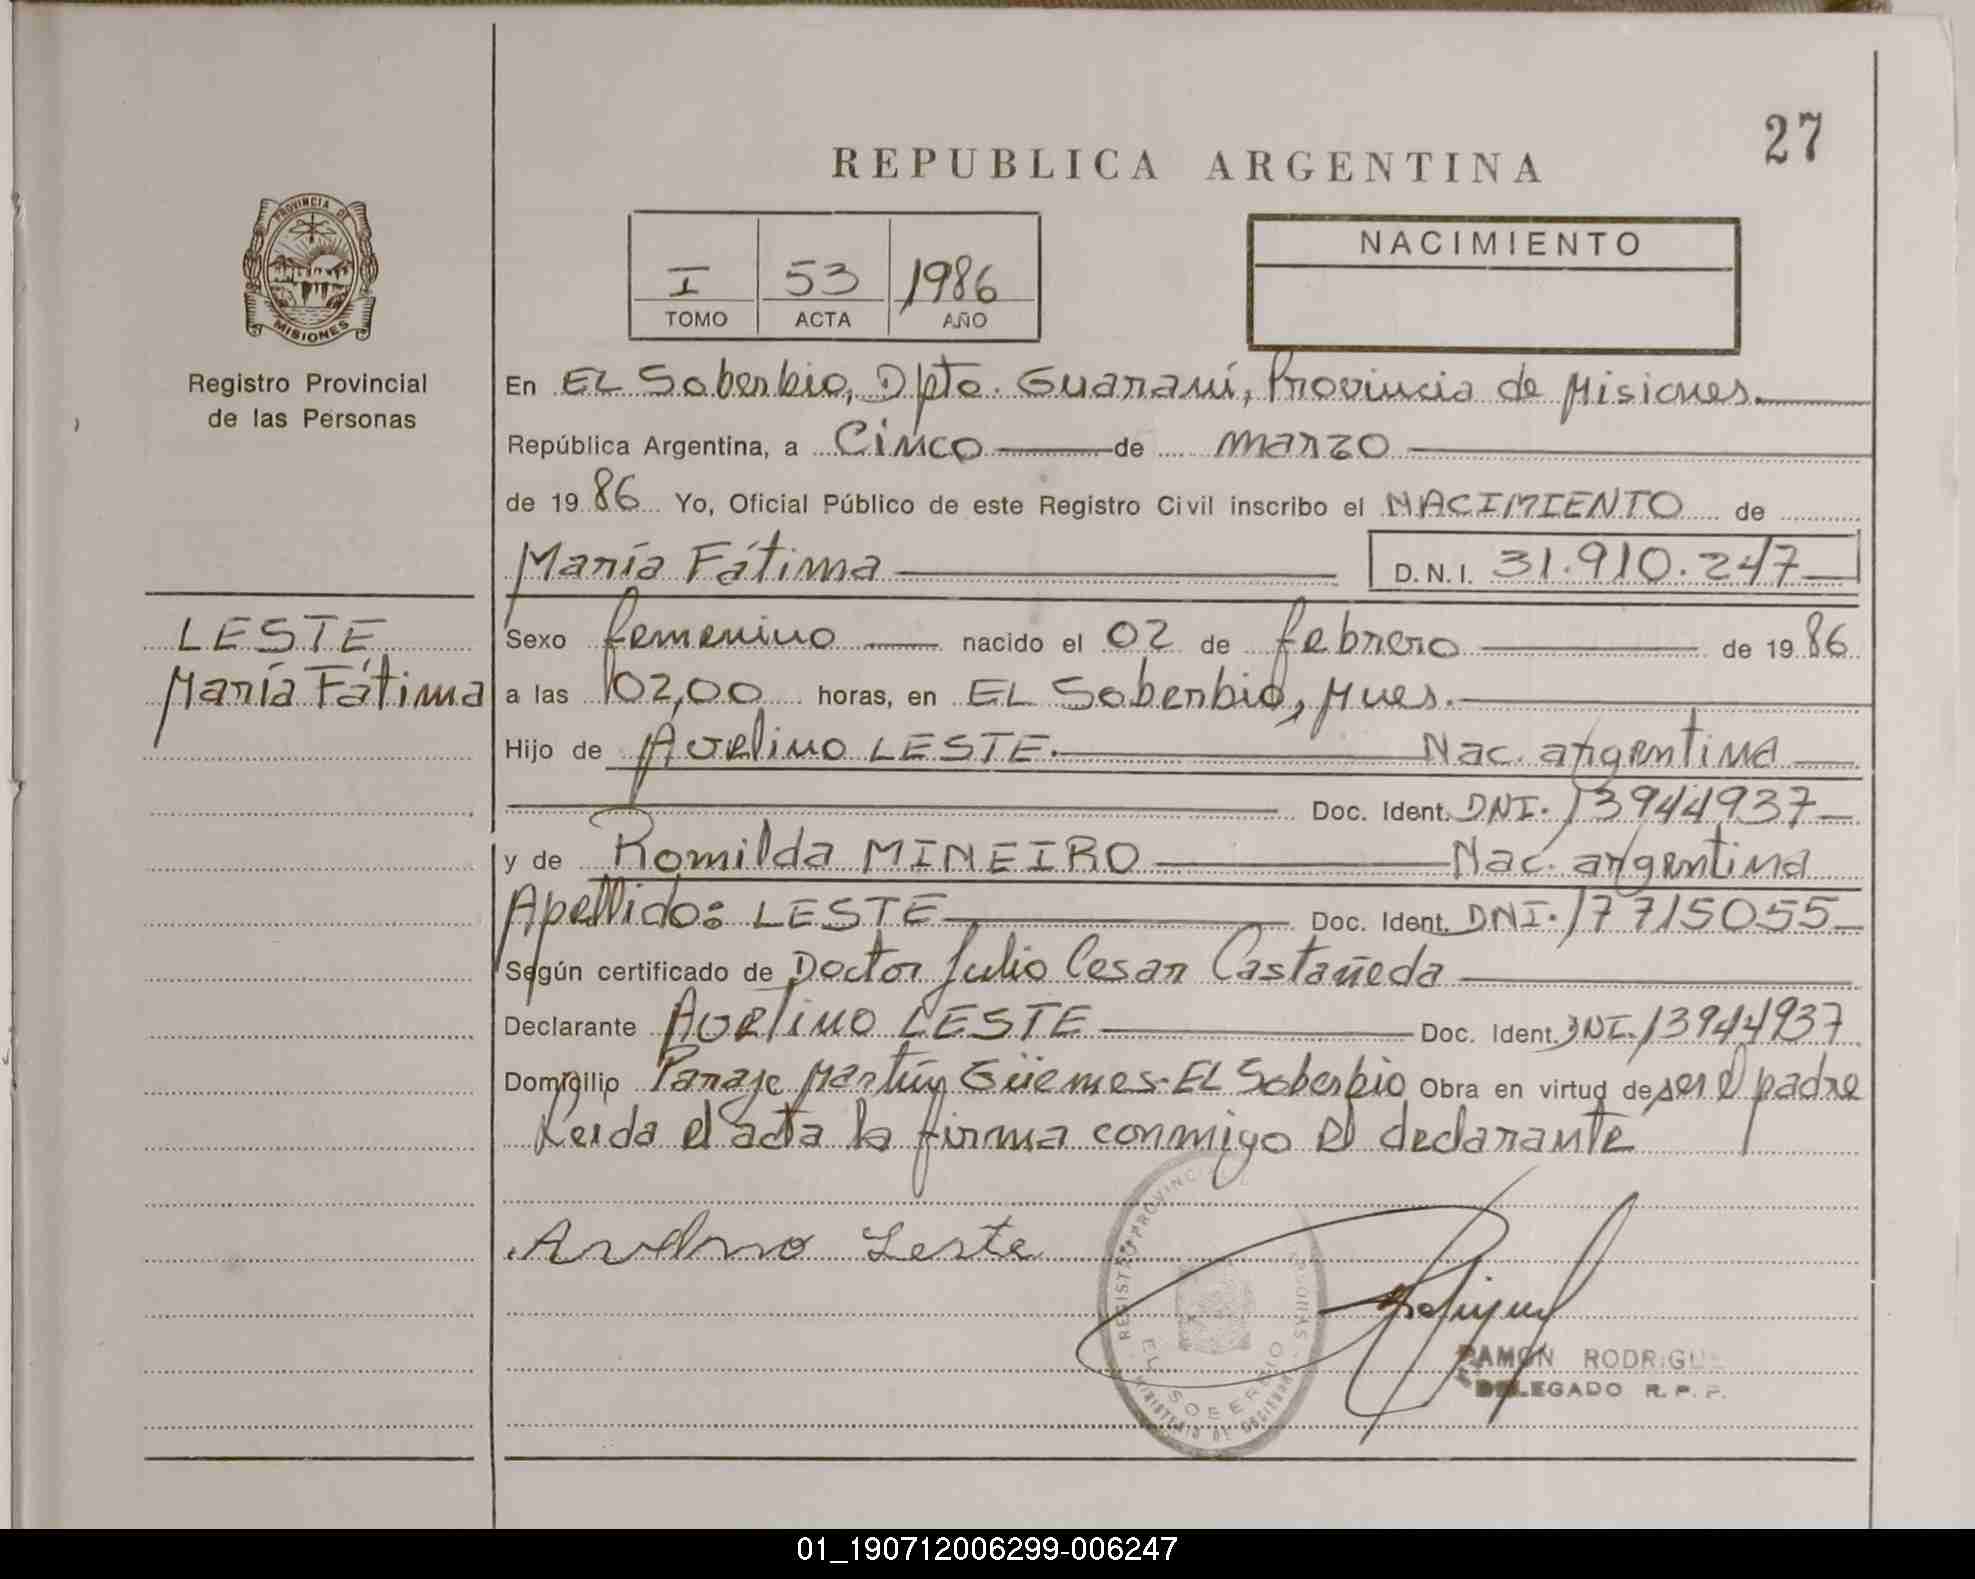 27
REPUBLICA ARGENTINA
PROVINCIA DE
MISIONES
Registro Provincial
de las Personas
I 53 1986
TOMO ACTA AÑO
NACIMIENTO
En EL Soberbio, Dpto. Guaraní, Provincia de Misiones.
República Argentina, a Cinco de marzo
de 1986 Yo, Oficial Público de este Registro Civil inscribo el NACIMIENTO de
María Fátima D.N.I. 31.910.247
LESTE
María Fátima
Sexo femenino nacido el 02 de febrero de 1986
a las 02,00 horas, en EL Soberbio, Mnes.
Hijo de Avelino LESTE. Nac. argentina
Doc. Ident. DNI. 13944937
y de Romilda MINEIRO Nac. argentina
Apellido: LESTE Doc. Ident. DNI. 17715055
Según certificado de Doctor Julio Cesar Castañeda
Declarante Avelino LESTE Doc. Ident. DNI. 13944937
Domicilio Paraje Martín Güemes-EL Soberbio Obra en virtud de ser el padre
Leida el acta la firma conmigo el declarante
Avelino Leste
REGISTRO PROVINCIAL
EL SOBERBIO
RAMON RODRIGU
DELEGADO R. P. P.
01_190712006299-006247